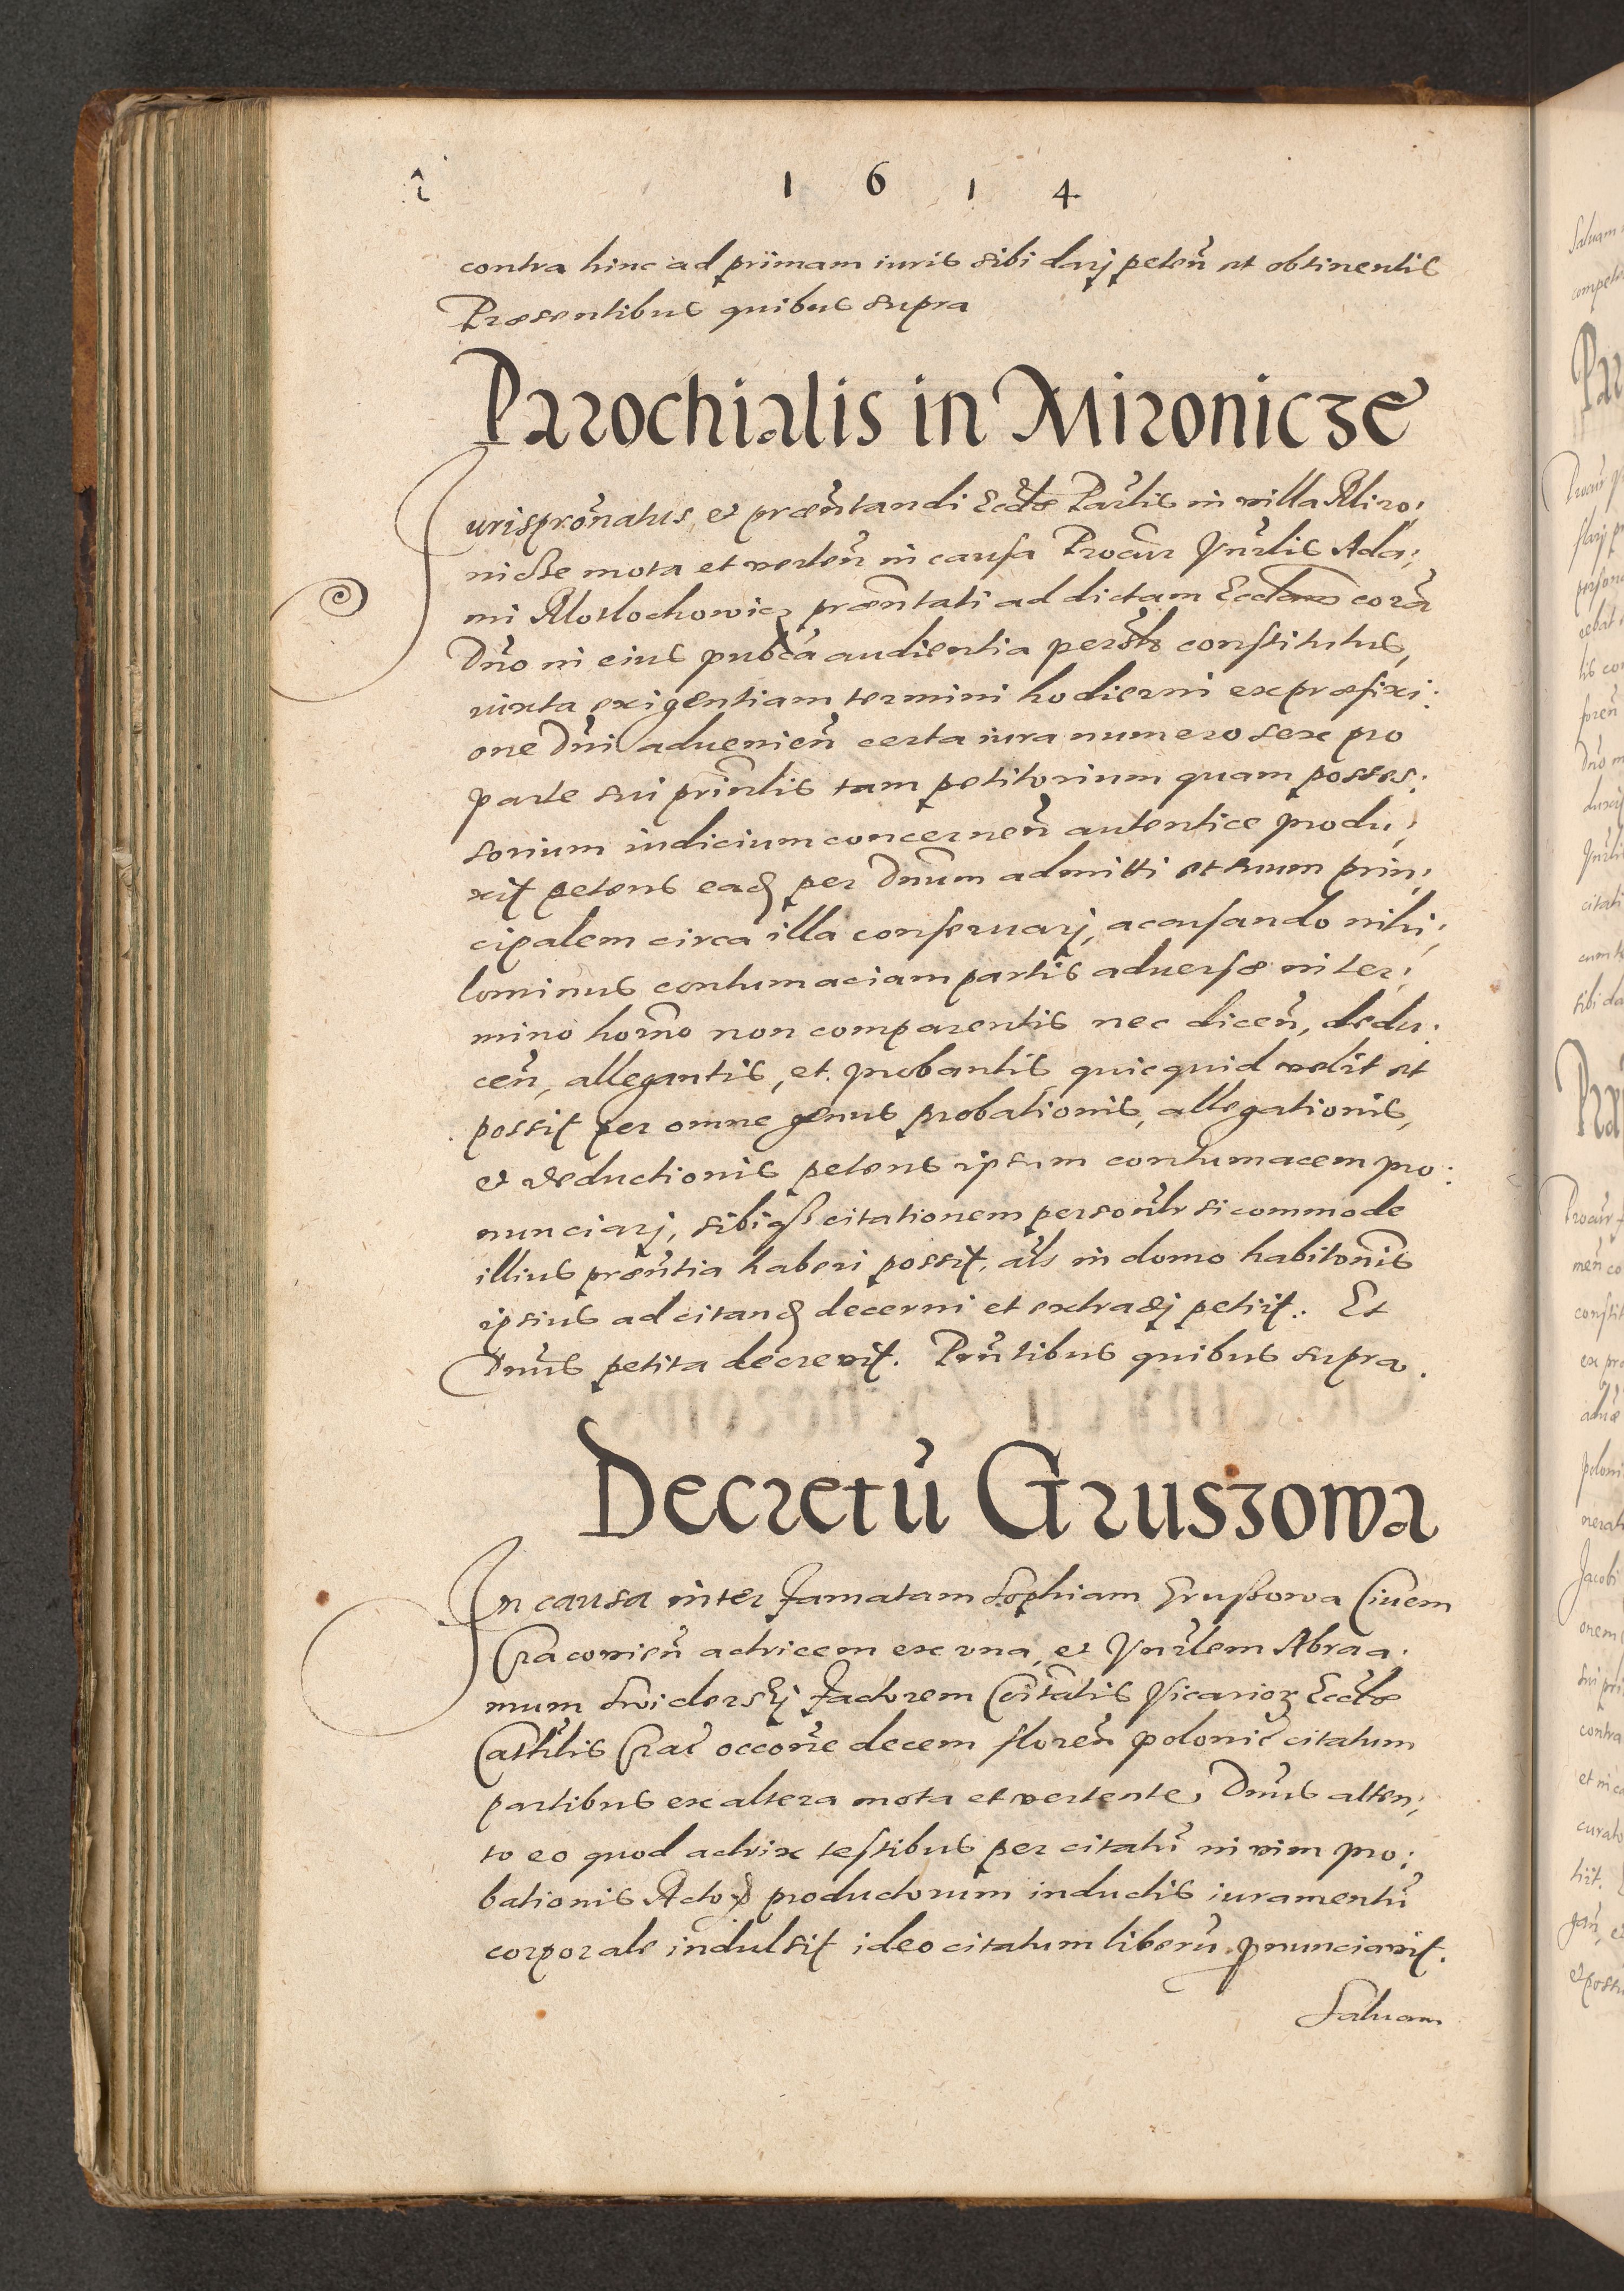 1 6 1 4
contra hinc ad primam iuris sibi darj peteñ et obtinentis
Præsentibus quibus supra
Parochialis in Mironicze
Jurisprõnatus, et præñtandi Eccłæ Parłis in villa Miro:
nicze mota et verteñ in causa Procur Vnrlis Ada:
mi Motlochowicz præñtati ad dictam Eccłam corã
Dño in eius pubcã audientia persłr constitutus,
iuxta exigentiam termini hodierni ex præfixi:
one Dñi advenieñ certa iura numero sex pro
parte sui prinłis tam petitorium quam posses:
sorium iudicium concerneñ autentice produ:
xit petens eadꝫ per Dnũm admitti et suum prin:
cipalem circa illa conservarj, acausando nihi:
lominus contumaciam partis adversæ in ter:
mino horno non comparentis nec diceñ, dedu:
ceñ, allegantis, et probantis quicquid velit et
possit per omne genus probationis, allegationis,
et deductionis petens ipsum contumacem pro:
nunciarj, sibiqꝫ citationem personłr si commode
illius præñtia haberi possit, als in domo habitonis
ipsius ad citandꝫ decerni et extradj petiit. Et
Dnũs petita decrevit. Pñtibus quibus supra.
Decretũ Gruszowa
In causa inter famatam Sophiam Gruszowa Civem
Cracovieñ actricem ex una, et Vnrlem Abraa:
mum Swiderskj factorem Coitatis Vicarioꝝ Eccłæ
Cathlis Crac̃ occoñe decem floreñ polonic̃ citatum
partibus ex altera mota et vertente, Dnũs atten:
to eo quod actrix testibus per citatũ in vim pro:
bationis Actoꝝ productorum inductis iuramentũ
corporale indulsit ideo citatum liberũ ꝓnunciavit.
Salvam